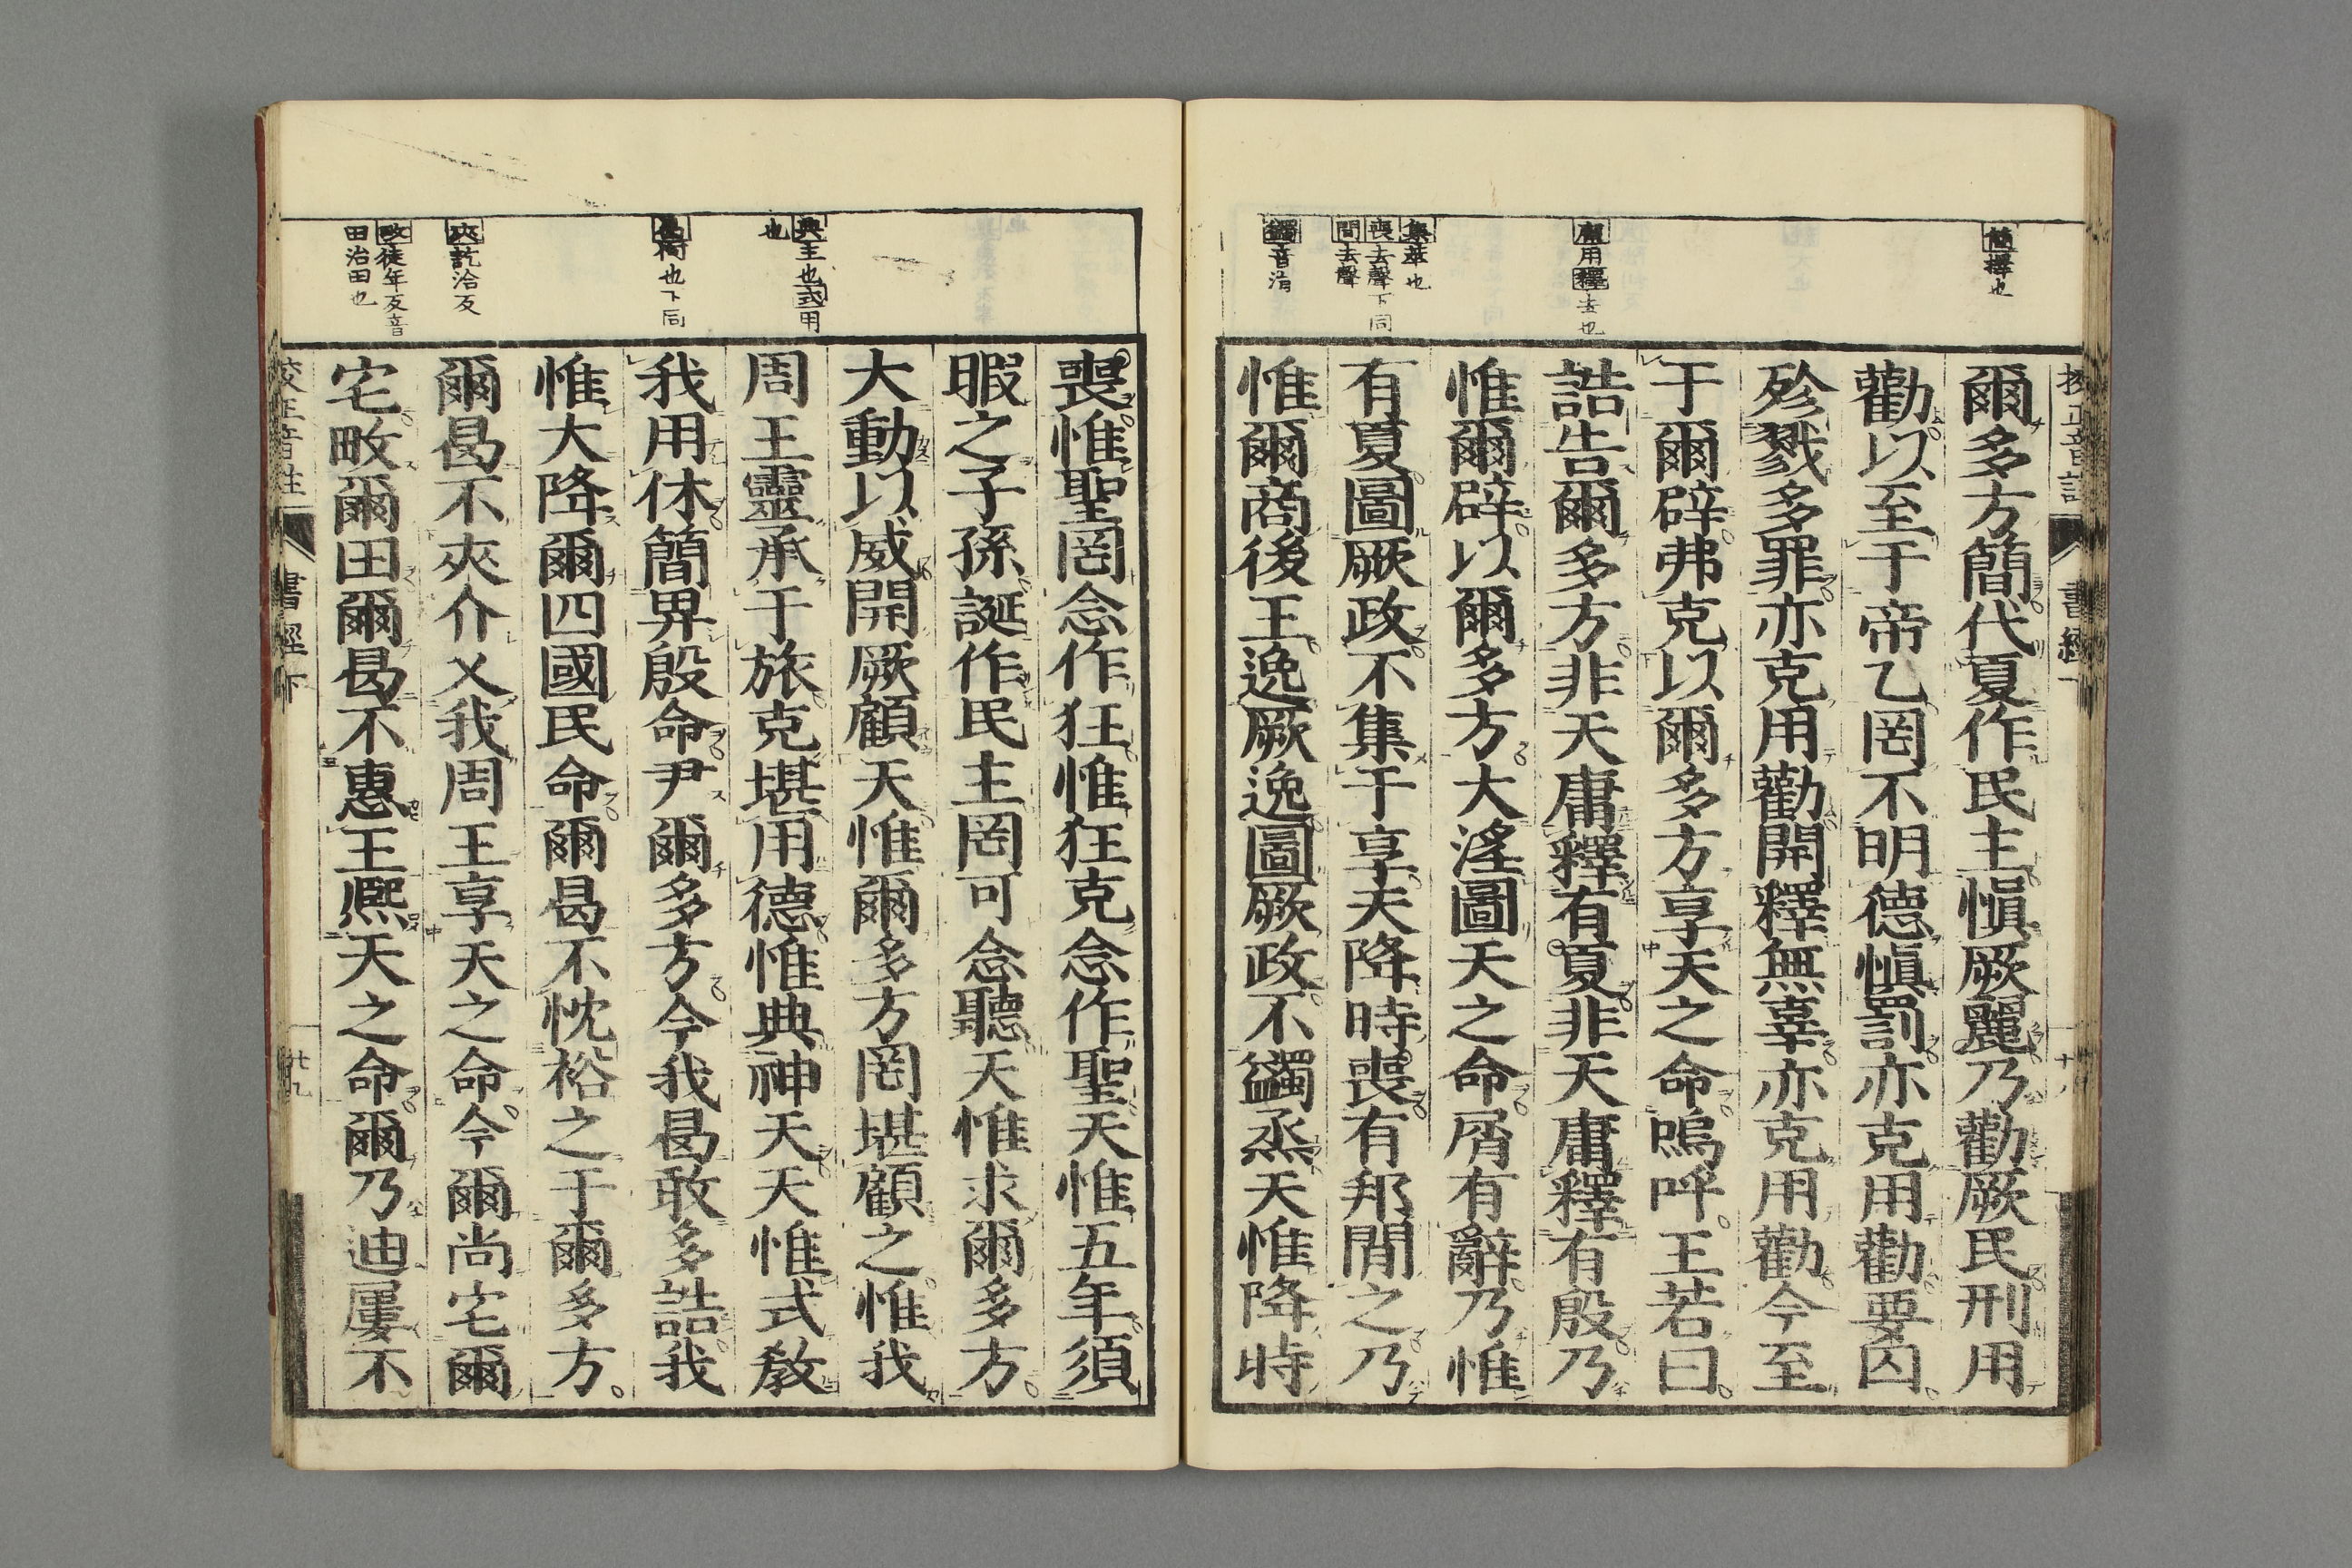 簡擇也
庸用釋去也
集萃也
喪去聲下同
間去聲
蠲音涓
爾多方簡代夏作民主愼厥麗乃勸厥民刑用
勸以至于帝乙罔不明德愼罰亦克用勸要囚
殄戮多罪亦克用勸開釋無辜亦克用勸今至
于爾辟弗克以爾多方享天之命嗚呼王若曰
誥告爾多方非天庸釋有夏非天庸釋有殷乃
惟爾辟以爾多方大淫圖天之命屑有辭乃惟
有夏圖厥政不集于享天降時喪有邦間之乃
惟爾商後王逸厥逸圖厥政不蠲烝天惟降時
典主也式用
也
夾訖洽反
畋徒年反音
田治田也
喪惟聖罔念作狂惟狂克念作聖天惟五年須
暇之子孫誕作民主罔可念聽天惟求爾多方
大動以威開厥顧天惟爾多方罔堪顧之惟我
周王靈承于旅克堪用德惟典神天天惟式敎
我用休簡畀殷命尹爾多方今我曷敢多誥我
惟大降爾四國民命爾曷不忱裕之于爾多方
爾曷不夾介乂我周王享天之命今爾尚宅爾
宅畋爾田爾曷不惠王熈天之命爾乃迪屢不
校正音註 書經下 廿九